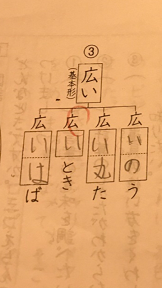 ③
基本形
広い
広いのう
広い丸た
広いとき
広いけば